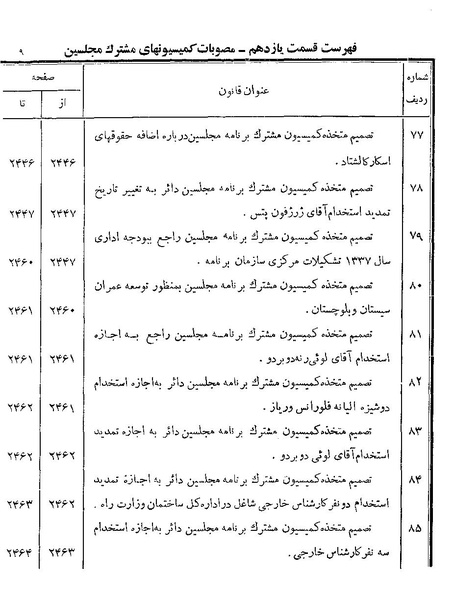 فهرست قسمت یازدهم ـ مصوبات کمیسیونهای مشترک مجلسین
۹
شماره ردیف
عنوان قانون
صفحه
از
تا
۷۷
تصمیم متخذه کمیسیون مشترک برنامه مجلسین درباره اضافه حقوقهای
اسکار کالشتاد .
۲۴۴۶
۲۴۴۶
۷۸
تصمیم متخذه کمیسیون مشترک برنامه مجلسین دائر به تغییر تاریخ
تمدید استخدام آقای ژرژفون پتس .
۲۴۴۷
۲۴۴۷
۷۹
تصمیم متخذه کمیسیون مشترک برنامه مجلسین راجع ببودجه اداری
سال ۱۳۳۷ تشکیلات مرکزی سازمان برنامه .
۲۴۴۷
۲۴۶۰
۸۰
تصمیم متخذه کمیسیون مشترک برنامه مجلسین بمنظور توسعه عمران
سیستان و بلوچستان .
۲۴۶۰
۲۴۶۱
۸۱
تصمیم متخذه کمیسیون مشترک برنامه مجلسین راجع به اجازه
استخدام آقای لوئی رنه دوبردو .
۲۴۶۱
۲۴۶۱
۸۲
تصمیم متخذه کمیسیون مشترک برنامه مجلسین دائر به اجازه استخدام
دوشیزه الیانه فلورانس وریاز .
۲۴۶۱
۲۴۶۲
۸۳
تصمیم متخذه کمیسیون مشترک برنامه مجلسین دائر به اجازه تمدید
استخدام آقای لوئی دوبردو .
۲۴۶۲
۲۴۶۲
۸۴
تصمیم متخذه کمیسیون مشترک برنامه مجلسین دائر به اجازۀ تمدید
استخدام دو نفر کارشناس خارجی شاغل در اداره کل ساختمان وزارت راه .
۲۴۶۲
۲۴۶۳
۸۵
تصمیم متخذه کمیسیون مشترک برنامه مجلسین دائر به اجازه استخدام
سه نفر کارشناس خارجی .
۲۴۶۳
۲۴۶۴